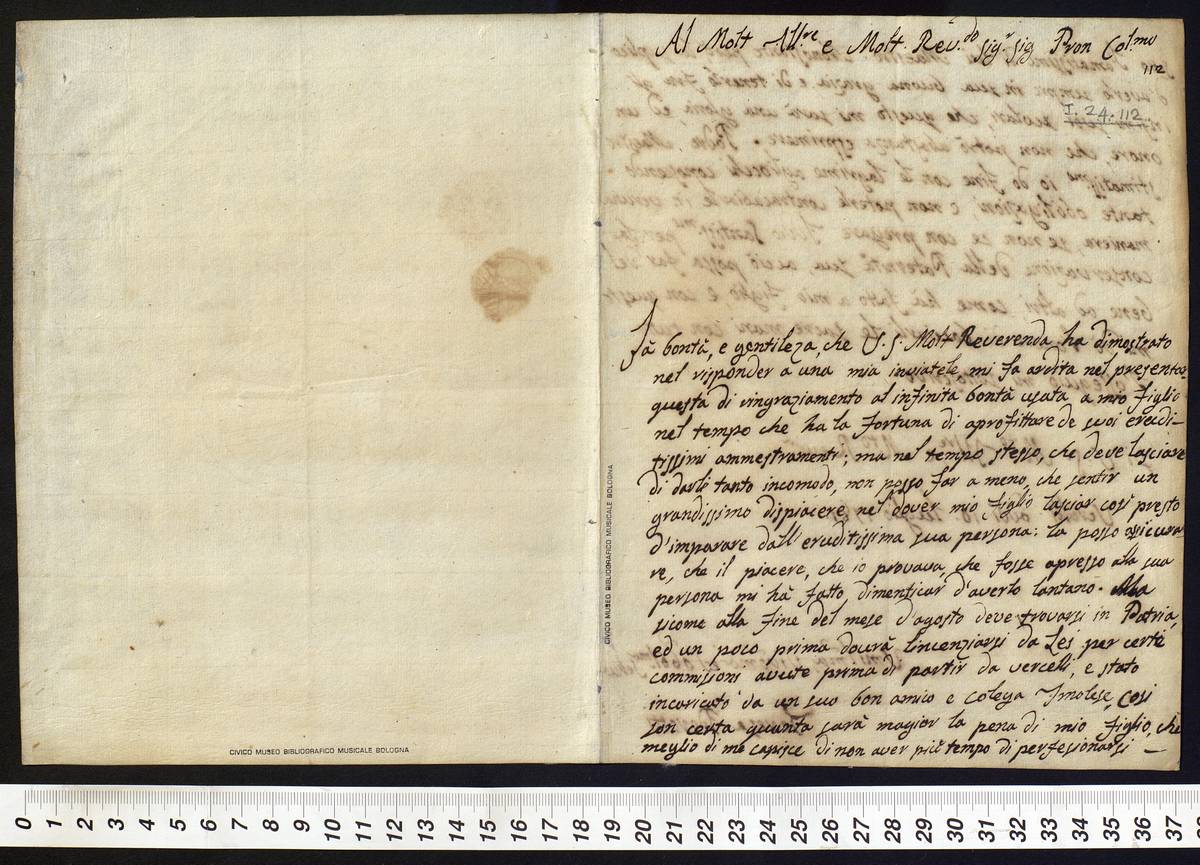 Al Molt Ill.re e Molt Rev.do Sig.r Sig Pron Col.mo
112
I. 24. 112.
La bontà, e gentileza, che V. S. Molt Reverenda ha dimostrato
nel risponder a una mia inviatele mi fa ardita nel presentar
questa di ringraziamento al infinita bontà usata a mio figlio
nel tempo che ha la fortuna di aprofittare de suoi erudi-
tissimi ammestramenti; ma nel tempo stesso, che deve lasciare
di darli tanto incomodo, non posso far a meno, che sentir un
grandissimo dispiacere nel dover mio figlio lasciar cosi presto
d'imparare dall'eruditissima sua persona: la posso assicura-
re, che il piacere, che io provava, che fosse apresso alla sua
persona mi hà fatto dimenticar d'averlo lontano. Ma
sicome alla fine del mese d'agosto deve trovarsi in Patria,
ed un poco prima dourà lincenziarsi da Les per certe
commissioni avute prima di partir da vercelli, e stato
incaricato da un suo bon amico e colega Imolese, Cosi
son certa quanta sarà magior la pena di mio figlio, che
meglio di me capisce di non aver più tempo di perfesionarsi —
CIVICO MUSEO BIBLIOGRAFICO MUSICALE BOLOGNA
CIVICO MUSEO BIBLIOGRAFICO MUSICALE BOLOGNA
0 1 2 3 4 5 6 7 8 9 10 11 12 13 14 15 16 17 18 19 20 21 22 23 24 25 26 27 28 29 30 31 32 33 34 35 36 37